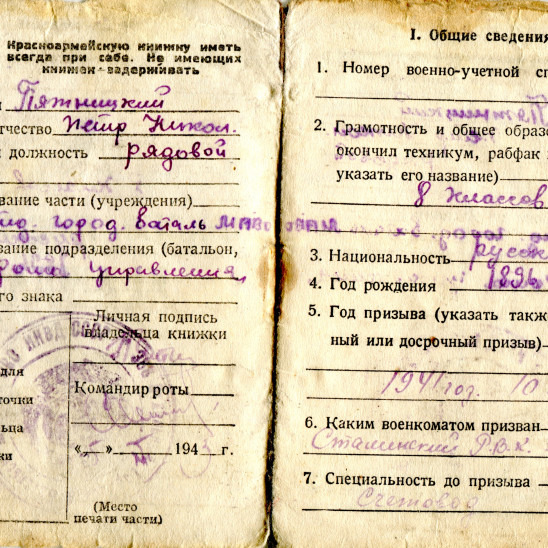 Красноармейскую книжку иметь
всегда при себе. Не имеющих
книжек – задерживать
Пятницкий
чество Петр Никол.
должность рядовой
вание части (учреждения)
город. баталь МПВО
вание подразделения (батальон,
рота управления
го знака
Личная подпись
владельца книжки
для
Командир роты
точки
льца
ки
„ “ 194 г.
(Место
печати части)
I. Общие сведения
1. Номер военно-учетной сп
2. Грамотность и общее образо
окончил техникум, рабфак
указать его название)
8 классов
3. Национальность русск
4. Год рождения 1896
5. Год призыва (указать такж
ный или досрочный призыв)
1941 год. 10
6. Каким военкоматом призван
Сталинский Р.В.К.
7. Специальность до призыва
Счетовод